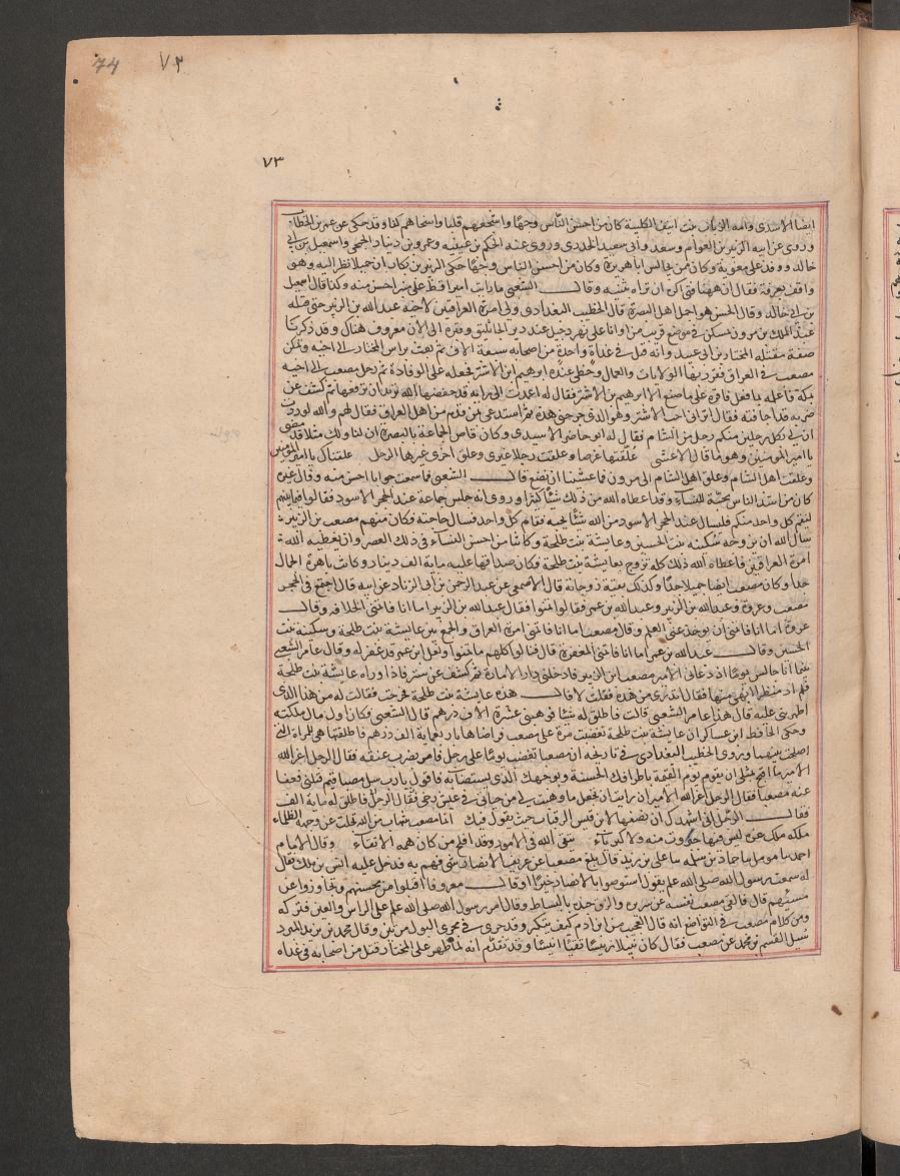 74 ٧٣
٧٣
ايضا الاسدى وامه الرباب بنت انيف الكلبية كان من احسن الناس وجها واشجعهم قلبا واسخاهم كفا وقد حكى عن عمر بن الخطاب
وروى عن ابيه الزبير بن العوام وسعد وابى سعيد الخدرى وروى عنه الحكم بن عيينه وعمرو بن دينار الجمحى واسمعيل بن ابى
خالد ووفد على معوية وكان ممن يجالس ابا هريرة وكان من احسن الناس وجها حكى الزبير بن بكار ان جميلا نظر اليه وهو
واقف بعرفة فقال ان ههنا فتى اكره ان تراه بثينه وقال الشعبى ما رايت اميرا قط على منبر احسن منه وكذا قال اسمعيل
بن ابى خالد وقال الحسن هو اجمل اهل البصرة قال الخطيب البغدادى ولى امرة العراقين لاخيه عبد الله بن الزبير حتى قتله
عبد الملك بن مرون بمسكن فى موضع قريب من اوانا على نهر دجيل عند دير الجاثليق وقبره الى الان معروف هناك وقد ذكرنا
صفة مقتله المختار بن ابى عبيد وانه قتل فى غداة واحدة من اصحابه سبعة الاف ثم بعث براس المختار الى اخيه وتمكن
مصعب فى العراق فقرر بها الولايات والعمال وحظى عنده ابرهيم ابن الاشتر فجعله على الوفادة ثم رحل مصعب الى اخيه
بمكة فاعلمه بما فعل فاقره على ما صنع الا ابرهيم بن الاشتر فقال له اعمدت الى رايه قد خفضها الله تريد ان ترفعها ثم كشف عن
ضربه قد اجافته فقال اترانى احب الاشتر وهو الذى جرحنى هذه ثم استدعى بمن قدم من اهل العراق فقال لهم والله لوددت
ان لى بكل رجلين منكم رجل من الشام فقال له ابو حاضر الاسيدى وكان قاص الجماعة بالبصرة ان لنا ولك مثلا قد مضى
يا امير المومنين وهو ما قال الاعشى علقتها عرضا وعلقت رجلا غيرى وعلق اخرى غيرها الرجل علقناك يا امير المومنين
وعلقت اهل الشام وعلق اهل الشام الى مرون فما عسينا ان نصنع قال الشعبى فما سمعت جوابا احسن منه وقال غيره
كان من اشد الناس محبة للنساء وقد اعطاه الله من ذلك شيئا كثيرا وروى انه جلس جماعة عند الحجر الاسود فقالوا فيما بينهم
ليقم كل واحد منكم فليسال عند الحجر الاسود من الله شيئا يحبه فقام كل واحد فسال حاجته فكان منهم مصعب بن الزبير
سال الله ان يزوجه سكينه بنت الحسين وعايشة بنت طلحة وكانتا من احسن النساء فى ذلك العصر وان يعطيه الله
امرة العراقين فاعطاه الله ذلك كله تزوج بعايشة بنت طلحة وكان صداقها عليه مايه الف دينار وكانت باهرة الجمال
جدا وكان مصعب ايضا جميلا جدا وكذلك بقية زوجاته قال الاصمعى عن عبد الرحمن بن ابى الزناد عن ابيه قال اجتمع فى الحجر
مصعب وعروة وعبد الله بن الزبير وعبد الله بن عمر فقالوا تمنوا فقال عبد الله بن الزبير اما انا فاتمنى الخلافه وقال
عروة اما انا فاتمنى ان يوخذ عنى العلم وقال مصعب اما انا فاتمنى امرة العراق والجمع بين عايشة بنت طلحة وسكينه بنت
الحسين وقال عبد الله بن عمر اما انا فاتمنى المغفرة قال فنالوا كلهم ما تمنوا ولعل ابن عمر قد غفر له وقال عامر الشعبى
بينما انا جالس يوما اذ دعانى الامير مصعب ابن الزبير فادخلنى دار الامارة ثم كشف عن ستر فاذا وراه عايشة بنت طلحة
فلم ار منظرا ابهى منها فقال اتدرى من هذه فقلت لا قال هذه عايشة بنت طلحة ثم خرجت فقالت له من هذا الذى
اظهرتنى عليه قال هذا عامر الشعبى قالت فاطلق له شيئا فوهبنى عشرة الاف درهم قال الشعبى وكان اول مال ملكته
وحكى الحافظ ابن عساكر ان عايشة بنت طلحة تغضبت مرة على مصعب فراضاها باربعماية الف درهم فاطلقتها هى للمراة التى
اصلحت بينهما وروى الخطيب البغدادى فى تاريخه ان مصعبا غضب يوما على رجل فامر بضرب عنقه فقال الرجل اعز الله
الامير ما اقبح مثلى ان يقوم يوم القيمة باطرافك الحسنة وبوجهك الذى يستضا به فاقول يا رب سل مصعبا فيم قتلنى فعفا
عنه مصعب فقال الرجل اعز الله الامير ان رايت ان تجعل ما وهبت لى من حياتى فى عيش رخى فقال الرجل فاطلق له مايه الف
فقال الرجل انى اشهدك ان نصفها لابن قيس الرقيات حيث يقول فيك انما مصعب شهاب من الله تجلت عن وجهه الظلماء
ملكه ملك عزة ليس فيها جبروت منه ولا كبرياء يتقى الله فى الامور وقد افلح من كان همه الاتقاء وقال الامام
احمد ثنا مومل ثنا حماد بن سلمه ثنا على بن زيد قال بلغ مصعبا عن عريف الانصار شى فهم به فدخل عليه انس بن ملك فقال
له سمعت رسول الله صلى الله علم يقول استوصوا بالانصار خيرا او قال معروفا اقبلوا من محسنهم وتجاوزوا عن
مسيئهم قال فالقى مصعب نفسه عن سريره والزق خده بالبساط وقال امر رسول الله صلى الله علم على الراس والعين فتركه
ومن كلام مصعب فى التواضع انه قال العجب من ابن ادم كيف يتكبر وقد جرى فى مجرى البول مرتين وقال محمد بن يزيد المبرد
سيل القسم بن محمد عن مصعب فقال كان نبيلا رييسا تقيا انيسا وقد تقدم انه لما ظهر على المختار قتل من اصحابه فى غداه